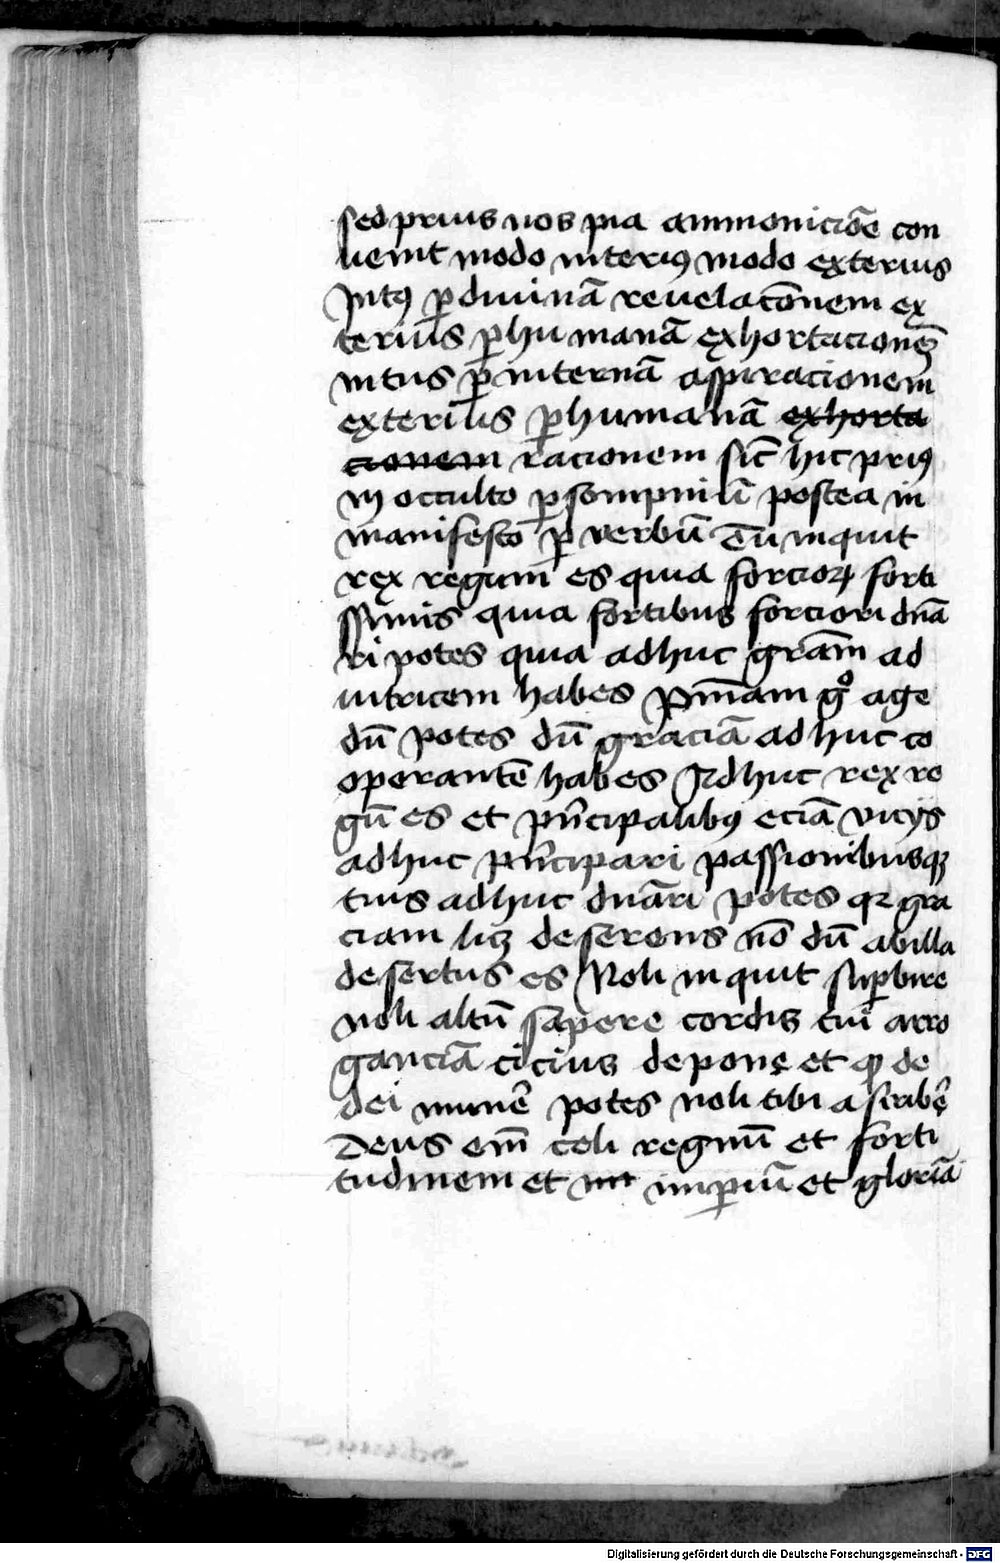 sed prius nos pia ammoniciōe con
uenit modo interiꝰ modo exterius
Intꝰ ꝑ diuinā reuelacōnem ex
terius ꝑ humanā exhortacionēs
intus ꝑ internā aspiracionem
exterius ꝑ humanā exhorta
cionem racionem sic̄ hic priꝰ
in occulto ꝑ sompniū postea in
manifesto ꝑ verbū Tu inquit
rex regum es quia forcioꝝ forti
ssimis quia fortibus forciori dnā
ri potes quia adhuc grām ad
iutricem habes Pniām gͦ age
dū potes dū graciā adhuc co
operantē habes Adhuc rex re
gū es et prīcipalibꝰ eciā vicijs
adhuc prīcipari passionibusqꝫ
tuis adhuc dnāri potes qꝛ gra
ciam licꝫ deserens nō dū ab illa
desertus es Noli inquit suꝑbire
noli altū sapere cordis tui arro
ganciā cicius depone et ꝙ de
dei munē potes noli tibi ascribē
Deus em̄ celi regnū et forti
tudinem et imꝑiū et gloriā
Digitalisierung gefördert durch die Deutsche Forschungsgemeinschaft - DFG